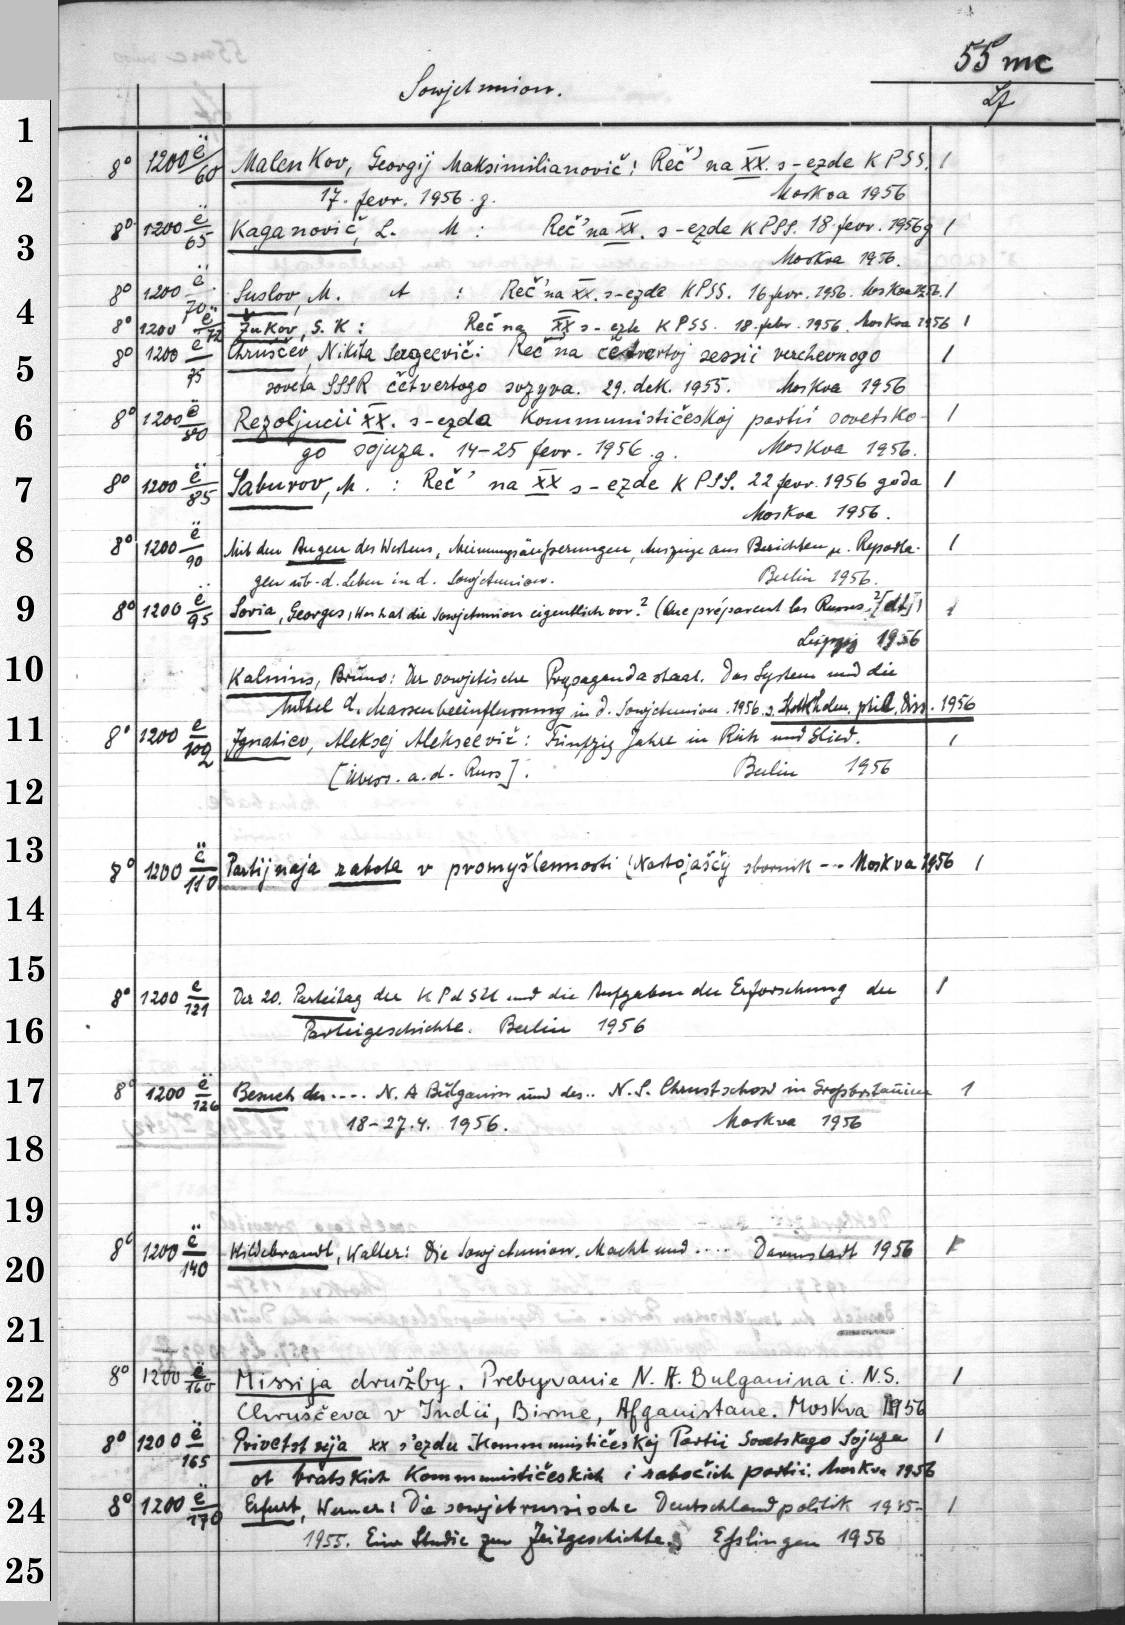 55 mc
Sowjetunion.
Lf
1
8° 1200 ë/60 Malenkov, Georgij Maksimilianovič: Reč' na XX. s-ezde KPSS. 1
2
17. fevr. 1956 g. Moskva 1956
8° 1200 ë/65 Kaganovič, L. M: Reč' na XX. s-ezde KPSS. 18 fevr. 1956 g 1
3
Moskva 1956.
8° 1200 ë/70 Suslov, M. A: Reč' na XX. s-ezde KPSS. 16 fevr. 1956. Moskva 1956. 1
4
8° 1200 ë/72 Žukov, S. K: Reč na XX s-ezde KPSS. 18. febr. 1956. Moskva 1956 1
8° 1200 ë/75 Chruščev, Nikita Sergeevič: Reč' na četvertoj sessii verchovnogo 1
5
soveta SSSR četvertogo sozyva. 29. dek. 1955. Moskva 1956
8° 1200 ë/80 Rezoljucii XX. s-ezda Kommunističeskoj partii sovetsko- 1
6
go sojuza. 14-25 fevr. 1956. g. Moskva 1956.
8° 1200 ë/85 Saburov, M.: Reč' na XX s-ezde KPSS. 22 fevr. 1956 goda 1
7
Moskva 1956.
8° 1200 ë/90 Mit den Augen des Westens, Meinungsäußerungen, Auszüge aus Berichten u. Reporta- 1
8
gen üb. d. Leben in d. Sowjetunion. Berlin 1956.
8° 1200 ë/95 Soria, Georges: Was hat die Sowjetunion eigentlich vor? (Que préparent les Russes? [dt.]) 1
9
Leipzig 1956
10
Kalnins, Brūno: Der sowjetische Propagandastaat. Das System und die
Mittel d. Massenbeeinflussung in d. Sowjetunion. 1956. s. Stockholm, phil. Diss. 1956
11
8° 1200 ë/102 Ignatiev, Aleksej Alekseevič: Fünfzig Jahre in Reih und Glied. 1
[Übers. a. d. Russ]. Berlin 1956
12
13
8° 1200 ë/110 Partijnaja rabota v promyšlennosti (Nastojaščij sbornik -- Moskva 1956 1
14
15
8° 1200 ë/121 Der 20. Parteitag der KPdSU und die Aufgaben der Erforschung der 1
16
Parteigeschichte. Berlin 1956
17
8° 1200 ë/126 Besuch des .... N. A Bulganin und des .. N. S. Chrustschow in Großbritannien 1
18-27.4. 1956. Moskva 1956
18
19
8° 1200 ë/140 Hildebrandt, Walter: Die Sowjetunion. Macht und .... Darmstadt 1956 1
20
21
8° 1200 ë/160 Missija družby. Prebyvanie N. A. Bulganina i. N.S. 1
22
Chruščeva v Indii, Birme, Afganistane. Moskva 1956
8° 1200 ë/165 Privetstvija XX s'ezdu Kommunističeskoj Partii Sovetskogo Sojuza 1
23
ot bratskich Kommunističeskich i rabočich partii. Moskva 1956
8° 1200 ë/170 Erfurt, Werner: Die sowjetrussische Deutschlandpolitik 1945- 1
24
1955. Eine Studie zur Zeitgeschichte. Eßlingen 1956
25